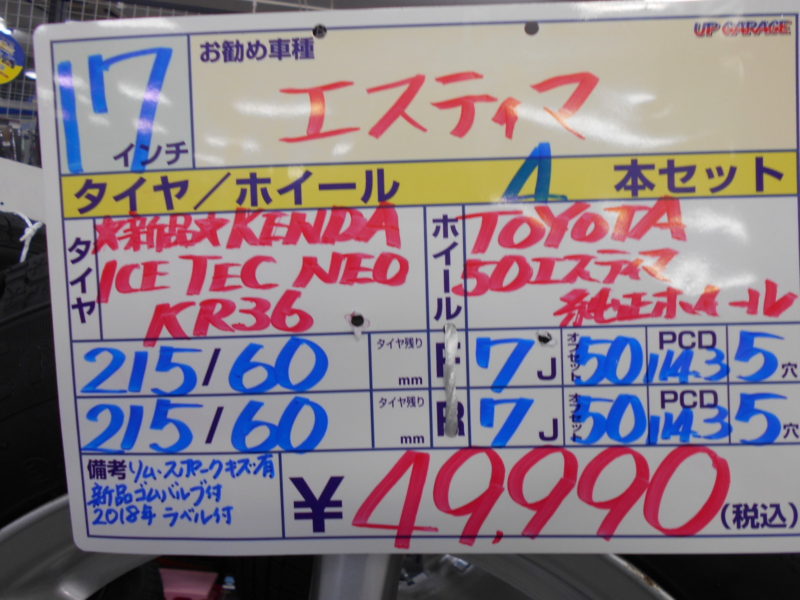 UP GARAGE
17インチ
お勧め車種
エスティマ
タイヤ/ホイール 4 本セット
タイヤ
★新品★KENDA
ICE TEC NEO
KR36
ホイール
TOYOTA
50エスティマ
純正ホイール
215/60 タイヤ残り mm F 7J オフセット 50 PCD 114.3 5穴
215/60 タイヤ残り mm R 7J オフセット 50 PCD 114.3 5穴
備考 リム・スポークキズ有
新品ゴムバルブ付
2018年 ラベル付
¥49,990(税込)